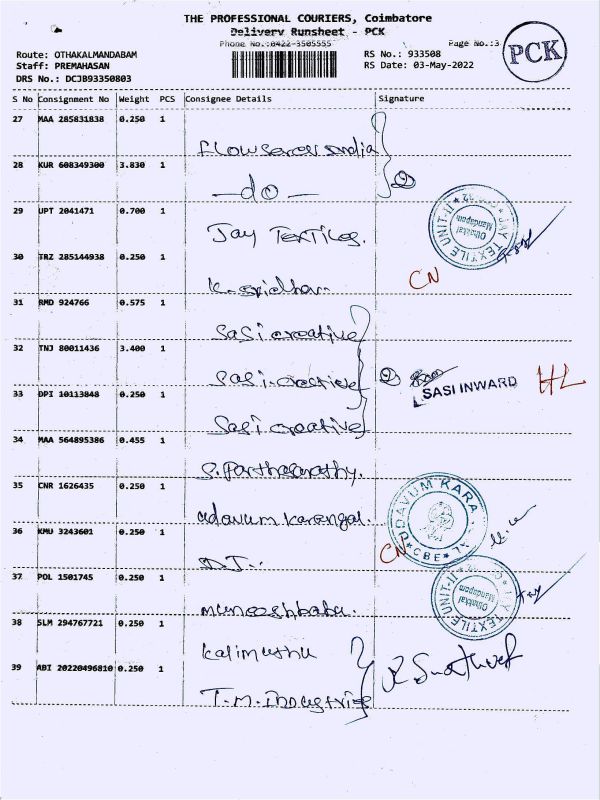 THE PROFESSIONAL COURIERS, Coimbatore
Delivery Runsheet - PCK
Phone No.:0422-3505555
Page No.:3
PCK
Route: OTHAKALMANDABAM
RS No.: 933508
Staff: PREMAHASAN
RS Date: 03-May-2022
DRS No.: DCJB93350803
S No Consignment No Weight PCS Consignee Details Signature
27 MAA 285831838 0.250 1
Flowserve India
28 KUR 608349300 3.830 1
-do-
29 UPT 2041471 0.700 1
Jay Textiles.
JAY TEXTILE UNIT-II Othakkal Mandapam
30 TRZ 285144938 0.250 1
K. Sridhar.
CN
31 RMD 924766 0.575 1
Sasi creative
32 TNJ 80011436 3.400 1
Sasi creative
SASI INWARD
33 DPI 10113848 0.250 1
Sasi creative
34 MAA 564895386 0.455 1
S. Parthasarathy.
35 CNR 1626435 0.250 1
udavum karangal.
UDAVUM KARA CBE
36 KMU 3243601 0.250 1
CN
37 POL 1501745 0.250 1
muneeshbabu.
JAY TEXTILE UNIT-II Othakkal Mandapam
38 SLM 294767721 0.250 1
Kalimuthu
39 ABI 20220496810 0.250 1
T.M. Industries